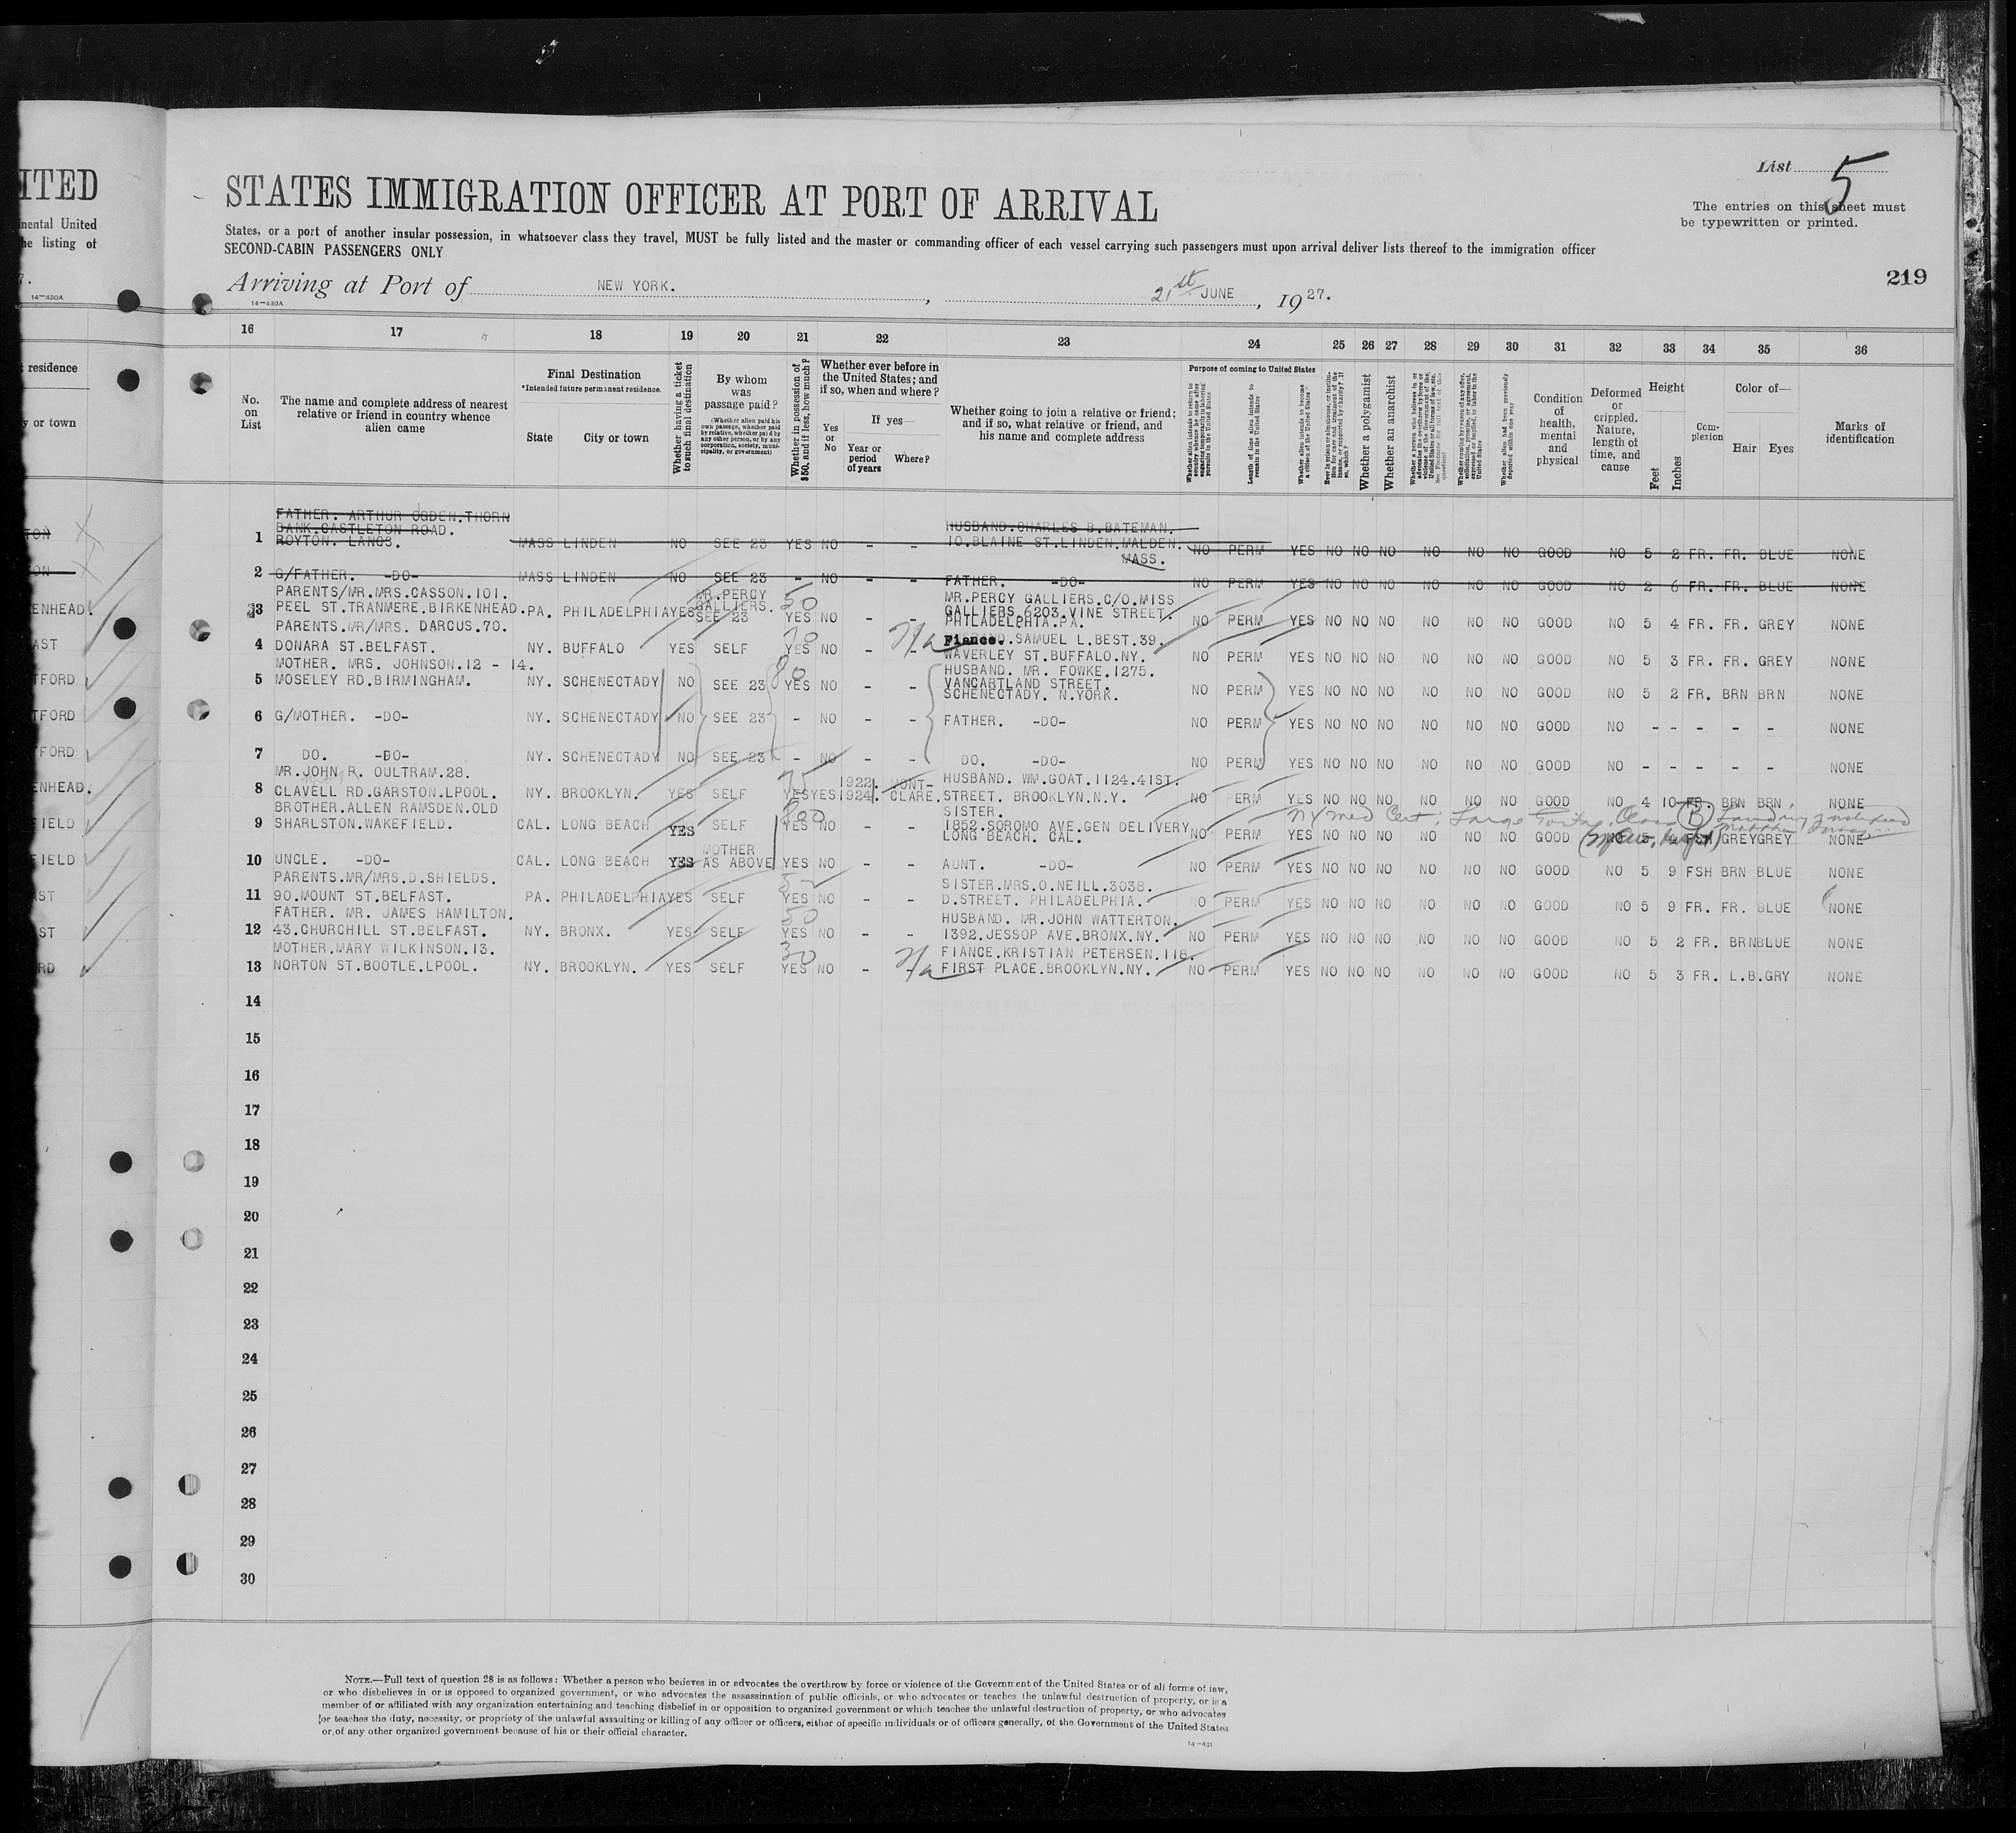 ITED
nental United
he listing of
7.
14—430A
residence
y or town
TON
ON
ENHEAD.
AST
TFORD
TFORD
TFORD
ENHEAD.
FIELD
FIELD
AST
ST
RD
List 5
The entries on this sheet must
be typewritten or printed.
219
STATES IMMIGRATION OFFICER AT PORT OF ARRIVAL
States, or a port of another insular possession, in whatsoever class they travel, MUST be fully listed and the master or commanding officer of each vessel carrying such passengers must upon arrival deliver lists thereof to the immigration officer
SECOND-CABIN PASSENGERS ONLY
Arriving at Port of NEW YORK. , 21st JUNE , 1927.
14—430A
16 17 18 19 20 21 22 23 24 25 26 27 28 29 30 31 32 33 34 35 36
No. on List
The name and complete address of nearest relative or friend in country whence alien came
Final Destination
*Intended future permanent residence.
State City or town
Whether having a ticket to such final destination
By whom was passage paid?
(Whether alien paid his own passage, whether paid by relative, whether paid by any other person, or by any corporation, society, municipality, or government)
Whether in possession of $50, and if less, how much?
Whether ever before in the United States; and if so, when and where?
Yes or No
If yes—
Year or period of years
Where?
Whether going to join a relative or friend; and if so, what relative or friend, and his name and complete address
Purpose of coming to United States
Length of time alien intends to remain in the United States
Whether alien intends to become a citizen of the United States
Whether a polygamist
Whether an anarchist
Whether alien had been previously deported within one year
Condition of health, mental and physical
Deformed or crippled. Nature, length of time, and cause
Height
Feet Inches
Complexion
Color of—
Hair Eyes
Marks of identification
1 FATHER. ARTHUR OGDEN.THORN
BANK.CASTLETON ROAD.
ROYTON. LANCS. MASS LINDEN NO SEE 23 YES NO - - HUSBAND.CHARLES B.BATEMAN.
10.BLAINE ST.LINDEN.MALDEN.
MASS. NO PERM YES NO NO NO NO NO NO GOOD NO 5 2 FR. FR. BLUE NONE
2 G/FATHER. -DO- MASS LINDEN NO SEE 23 - NO - - FATHER. -DO- NO PERM YES NO NO NO NO NO NO GOOD NO 2 6 FR. FR. BLUE NONE
3 PARENTS/MR.MRS.CASSON.101.
PEEL ST.TRANMERE.BIRKENHEAD. PA. PHILADELPHIA YES MR.PERCY
GALLIERS.
SEE 23 50 YES NO - - MR.PERCY GALLIERS.C/O.MISS
GALLIERS.6203.VINE STREET.
PHILADELPHIA.PA. NO PERM YES NO NO NO NO NO NO GOOD NO 5 4 FR. FR. GREY NONE
4 PARENTS.MR/MRS. DARGUS.70.
DONARA ST.BELFAST. NY. BUFFALO YES SELF 70 YES NO - - Fiance. SAMUEL L.BEST.39.
WAVERLEY ST.BUFFALO.NY. NO PERM YES NO NO NO NO NO NO GOOD NO 5 3 FR. FR. GREY NONE
5 MOTHER. MRS. JOHNSON.12 - 14.
MOSELEY RD.BIRMINGHAM. NY. SCHENECTADY NO SEE 23 80 YES NO - - HUSBAND. MR. FOWKE.1275.
VANCARTLAND STREET.
SCHENECTADY. N.YORK. NO PERM YES NO NO NO NO NO NO GOOD NO 5 2 FR. BRN BRN NONE
6 G/MOTHER. -DO- NY. SCHENECTADY NO SEE 23 - NO - - FATHER. -DO- NO PERM YES NO NO NO NO NO NO GOOD NO - - - - - NONE
7 DO. -DO- NY. SCHENECTADY NO SEE 23 - NO - - DO. -DO- NO PERM YES NO NO NO NO NO NO GOOD NO - - - - - NONE
8 MR.JOHN R. OULTRAM.28.
CLAVELL RD.GARSTON.LPOOL. NY. BROOKLYN. YES SELF YES YES 1922. 1924. MONT-
CLARE. HUSBAND. WM.GOAT.1124.41ST.
STREET. BROOKLYN.N.Y. NO PERM YES NO NO NO NO NO NO GOOD NO 4 10 FR. BRN BRN NONE
9 BROTHER.ALLEN RAMSDEN.OLD
SHARLSTON.WAKEFIELD. CAL. LONG BEACH YES SELF 800 YES NO - - SISTER.
1852.SOROMO AVE.GEN DELIVERY
LONG BEACH. CAL. NO PERM YES NO NO NO NO NO NO GOOD 5 FSH GREY GREY NONE
NY Med Cert. Large Class B
10 UNCLE. -DO- CAL. LONG BEACH YES MOTHER
AS ABOVE YES NO - - AUNT. -DO- NO PERM YES NO NO NO NO NO NO GOOD NO 5 9 FSH BRN BLUE NONE
11 PARENTS.MR/MRS.D.SHIELDS.
90.MOUNT ST.BELFAST. PA. PHILADELPHIA YES SELF YES NO - - SISTER.MRS.O.NEILL.3038.
D.STREET. PHILADELPHIA. NO PERM YES NO NO NO NO NO NO GOOD NO 5 9 FR. FR. BLUE NONE
12 FATHER. MR. JAMES HAMILTON.
43.CHURCHILL ST.BELFAST. NY. BRONX. YES SELF 50 YES NO - - HUSBAND. MR.JOHN WATTERTON.
1392.JESSOP AVE.BRONX.NY. NO PERM YES NO NO NO NO NO NO GOOD NO 5 2 FR. BRN BLUE NONE
13 MOTHER.MARY WILKINSON.13.
NORTON ST.BOOTLE.LPOOL. NY. BROOKLYN. YES SELF 30 YES NO - - FIANCE.KRISTIAN PETERSEN.118.
FIRST PLACE.BROOKLYN.NY. NO PERM YES NO NO NO NO NO NO GOOD NO 5 3 FR. L.B. GRY NONE
14
15
16
17
18
19
20
21
22
23
24
25
26
27
28
29
30
NOTE.—Full text of question 28 is as follows: Whether a person who believes in or advocates the overthrow by force or violence of the Government of the United States or of all forms of law,
or who disbelieves in or is opposed to organized government, or who advocates the assassination of public officials, or who advocates or teaches the unlawful destruction of property, or is a
member of or affiliated with any organization entertaining and teaching disbelief in or opposition to organized government or which teaches the unlawful destruction of property, or who advocates
or teaches the duty, necessity, or propriety of the unlawful assaulting or killing of any officer or officers, either of specific individuals or of officers generally, of the Government of the United States
or of any other organized government because of his or their official character.
14—431